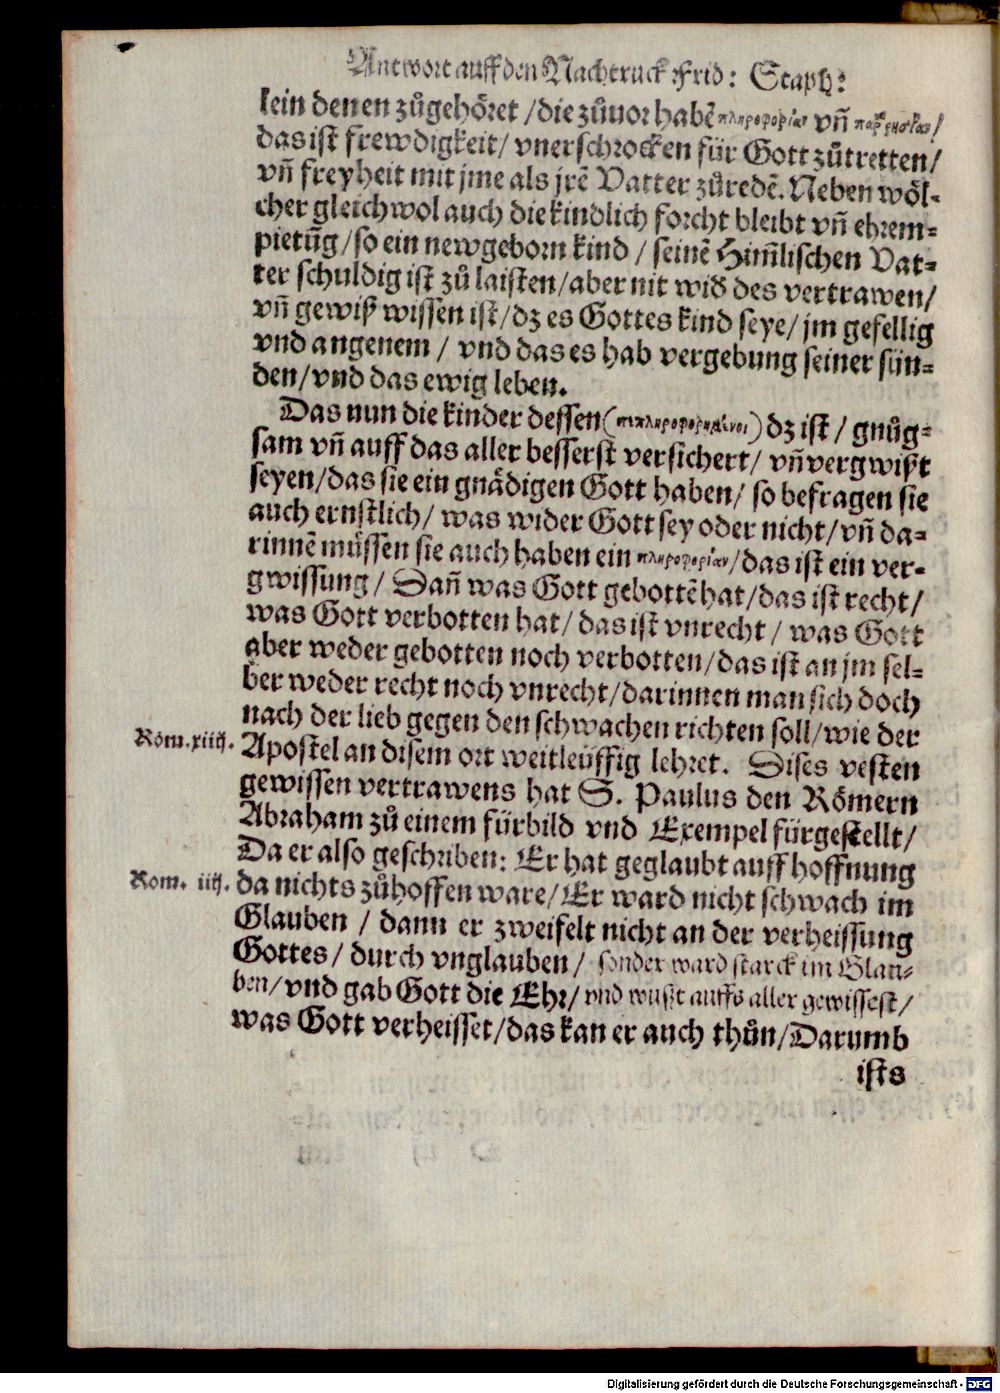 Antwort auff den Nachtruck Frid: Staph:
lein denen zůgehöret / die zůuor habẽ πληροφορίαν vñ παῤῥησίαν /
das ist frewdigkeit / vnerschrocken für Gott zůtretten /
vñ freyheit mit jme als jrẽ Vatter zůredẽ. Neben wöl⸗
cher gleichwol auch die kindlich forcht bleibt vñ ehrem⸗
pietũg / so ein newgeborn kind / seinẽ Him̃lischen Vat⸗
ter schuldig ist zů laisten / aber nit wiď des vertrawen /
vñ gewiß wissen ist / dz es Gottes kind seye / jm gefellig
vnd angenem / vnd das es hab vergebung seiner sün⸗
den / vnd das ewig leben.
Das nun die kinder dessen (πεπληροφορημένοι) dz ist / gnůg⸗
sam vñ auff das aller besserst versichert / vñ vergwißt
seyen / das sie ein gnädigen Gott haben / so befragen sie
auch ernstlich / was wider Gott sey oder nicht / vñ da⸗
rinnẽ müssen sie auch haben ein πληροφορίαν / das ist ein ver⸗
gwissung / Dañ was Gott gebottẽ hat / das ist recht /
was Gott verbotten hat / das ist vnrecht / was Gott
aber weder gebotten noch verbotten / das ist an jm sel⸗
ber weder recht noch vnrecht / darinnen man sich doch
nach der lieb gegen den schwachen richten soll / wie der
Röm. xiiij.
Apostel an disem ort weitleüffig lehret. Dises vesten
gewissen vertrawens hat S. Paulus den Römern
Abraham zů einem fürbild vnd Exempel fürgestellt /
Da er also geschriben: Er hat geglaubt auff hoffnung
Rom. iiij.
da nichts zůhoffen ware / Er ward nicht schwach im
Glauben / dann er zweifelt nicht an der verheissung
Gottes / durch vnglauben / sonder ward starck im Glau⸗
ben / vnd gab Gott die Ehr / vnd wußt auffs aller gewissest /
was Gott verheisset / das kan er auch thůn / Darumb
ists
Digitalisierung gefördert durch die Deutsche Forschungsgemeinschaft - DFG